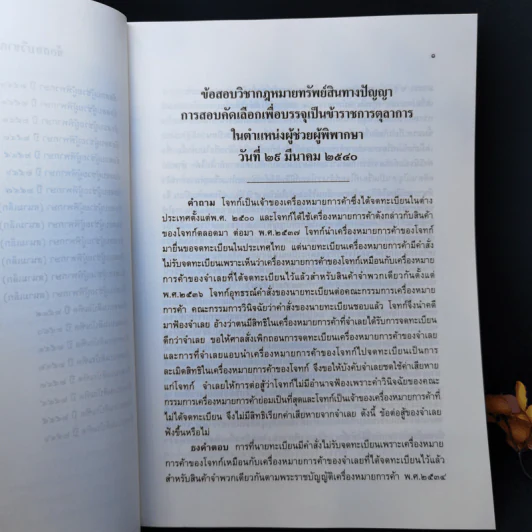 ๑
ข้อสอบวิชากฎหมายทรัพย์สินทางปัญญา
การสอบคัดเลือกเพื่อบรรจุเป็นข้าราชการตุลาการ
ในตำแหน่งผู้ช่วยผู้พิพากษา
วันที่ ๒๙ มีนาคม ๒๕๔๐
คำถาม โจทก์เป็นเจ้าของเครื่องหมายการค้าซึ่งได้จดทะเบียนในต่าง
ประเทศตั้งแต่พ.ศ. ๒๕๐๐ และโจทก์ได้ใช้เครื่องหมายการค้าดังกล่าวกับสินค้า
ของโจทก์ตลอดมา ต่อมา พ.ศ.๒๕๓๗ โจทก์นำเครื่องหมายการค้าของโจทก์
มายื่นขอจดทะเบียนในประเทศไทย แต่นายทะเบียนเครื่องหมายการค้ามีคำสั่ง
ไม่รับจดทะเบียนเพราะเห็นว่าเครื่องหมายการค้าของโจทก์เหมือนกับเครื่องหมาย
การค้าของจำเลยที่ได้จดทะเบียนไว้แล้วสำหรับสินค้าจำพวกเดียวกันตั้งแต่
พ.ศ.๒๕๓๖ โจทก์อุทธรณ์คำสั่งของนายทะเบียนต่อคณะกรรมการเครื่องหมาย
การค้า คณะกรรมการวินิจฉัยว่าคำสั่งของนายทะเบียนชอบแล้ว โจทก์จึงนำคดี
มาฟ้องจำเลย อ้างว่าตนมีสิทธิในเครื่องหมายการค้าที่จำเลยได้รับการจดทะเบียน
ดีกว่าจำเลย ขอให้ศาลสั่งเพิกถอนการจดทะเบียนเครื่องหมายการค้าของจำเลย
และการที่จำเลยแอบนำเครื่องหมายการค้าของโจทก์ไปจดทะเบียนเป็นการ
ละเมิดสิทธิในเครื่องหมายการค้าของโจทก์ จึงขอให้บังคับจำเลยชดใช้ค่าเสียหาย
แก่โจทก์ จำเลยให้การต่อสู้ว่าโจทก์ไม่มีอำนาจฟ้องเพราะคำวินิจฉัยของคณะ
กรรมการเครื่องหมายการค้าย่อมเป็นที่สุดและโจทก์เป็นเจ้าของเครื่องหมายการค้าที่
ไม่ได้จดทะเบียน จึงไม่มีสิทธิเรียกค่าเสียหายจากจำเลย ดังนี้ ข้อต่อสู้ของจำเลย
ฟังขึ้นหรือไม่
ธงคำตอบ การที่นายทะเบียนมีคำสั่งไม่รับจดทะเบียนเพราะเครื่องหมาย
การค้าของโจทก์เหมือนกับเครื่องหมายการค้าของจำเลยที่ได้จดทะเบียนไว้แล้ว
สำหรับสินค้าจำพวกเดียวกันตามพระราชบัญญัติเครื่องหมายการค้า พ.ศ.๒๕๓๔